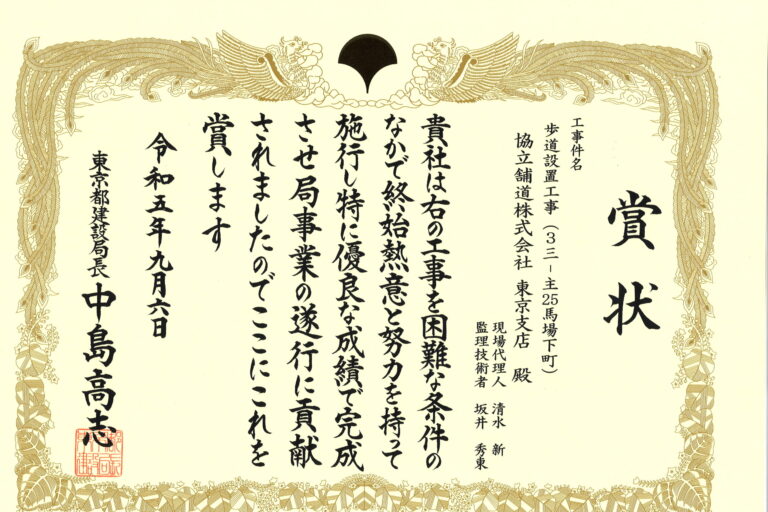 賞状
工事件名
歩道設置工事(3三-主25馬場下町)
協立舗道株式会社 東京支店 殿
現場代理人 清水 新
監理技術者 坂井 秀東
貴社は右の工事を困難な条件の
なかで終始熱意と努力を持って
施行し特に優良な成績で完成
させ局事業の遂行に貢献
されましたのでここにこれを
賞します
令和五年九月六日
東京都建設局長 中島高志